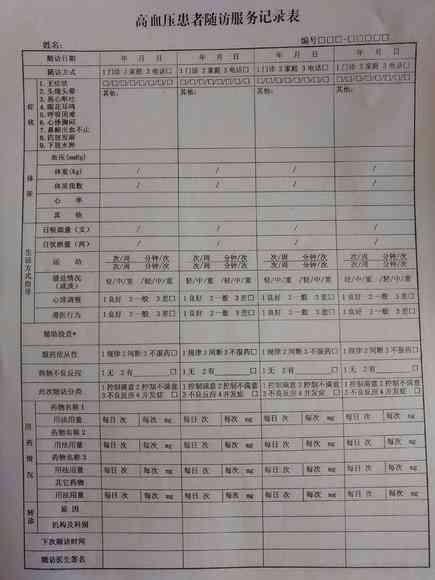 高血压患者随访服务记录表
姓名： 编号□□□-□□□□□
随访日期 年 月 日 年 月 日 年 月 日 年 月 日
随访方式 1门诊 2家庭 3电话□ 1门诊 2家庭 3电话□ 1门诊 2家庭 3电话□ 1门诊 2家庭 3电话□
症状
1.无症状 □/□/□/□/□/□/□/□ □/□/□/□/□/□/□/□ □/□/□/□/□/□/□/□ □/□/□/□/□/□/□/□
2.头痛头晕 其他： 其他： 其他： 其他：
3.恶心呕吐
4.眼花耳鸣
5.呼吸困难
6.心悸胸闷
7.鼻衄出血不止
8.四肢发麻
9.下肢水肿
体征
血压(mmHg)
体重(kg) / / / /
体质指数 / / / /
心 率
其 他
生活方式指导
日吸烟量（支） / / / /
日饮酒量（两） / / / /
运 动 次/周 分钟/次 次/周 分钟/次 次/周 分钟/次 次/周 分钟/次
次/周 分钟/次 次/周 分钟/次 次/周 分钟/次 次/周 分钟/次
摄盐情况（咸淡） 轻/中/重 /轻/中/重 轻/中/重 /轻/中/重 轻/中/重 /轻/中/重 轻/中/重 /轻/中/重
心理调整 1良好 2一般 3差□ 1良好 2一般 3差□ 1良好 2一般 3差□ 1良好 2一般 3差□
遵医行为 1良好 2一般 3差□ 1良好 2一般 3差□ 1良好 2一般 3差□ 1良好 2一般 3差□
辅助检查*
服药依从性 1规律2间断3不服药□ 1规律2间断3不服药□ 1规律2间断3不服药□ 1规律2间断3不服药□
药物不良反应 1无 2有 □ 1无 2有 □ 1无 2有 □ 1无 2有 □
此次随访分类 1控制满意2控制不满意 1控制满意2控制不满意 1控制满意2控制不满意 1控制满意2控制不满意
3不良反应4并发症□ 3不良反应4并发症□ 3不良反应4并发症□ 3不良反应4并发症□
用药情况
药物名称1
用法用量 每日 次 每次 mg 每日 次 每次 mg 每日 次 每次 mg 每日 次 每次 mg
药物名称2
用法用量 每日 次 每次 mg 每日 次 每次 mg 每日 次 每次 mg 每日 次 每次 mg
药物名称3
用法用量 每日 次 每次 mg 每日 次 每次 mg 每日 次 每次 mg 每日 次 每次 mg
其它药物
用法用量 每日 次 每次 mg 每日 次 每次 mg 每日 次 每次 mg 每日 次 每次 mg
转诊
原 因
机构及科别
下次随访时间
随访医生签名